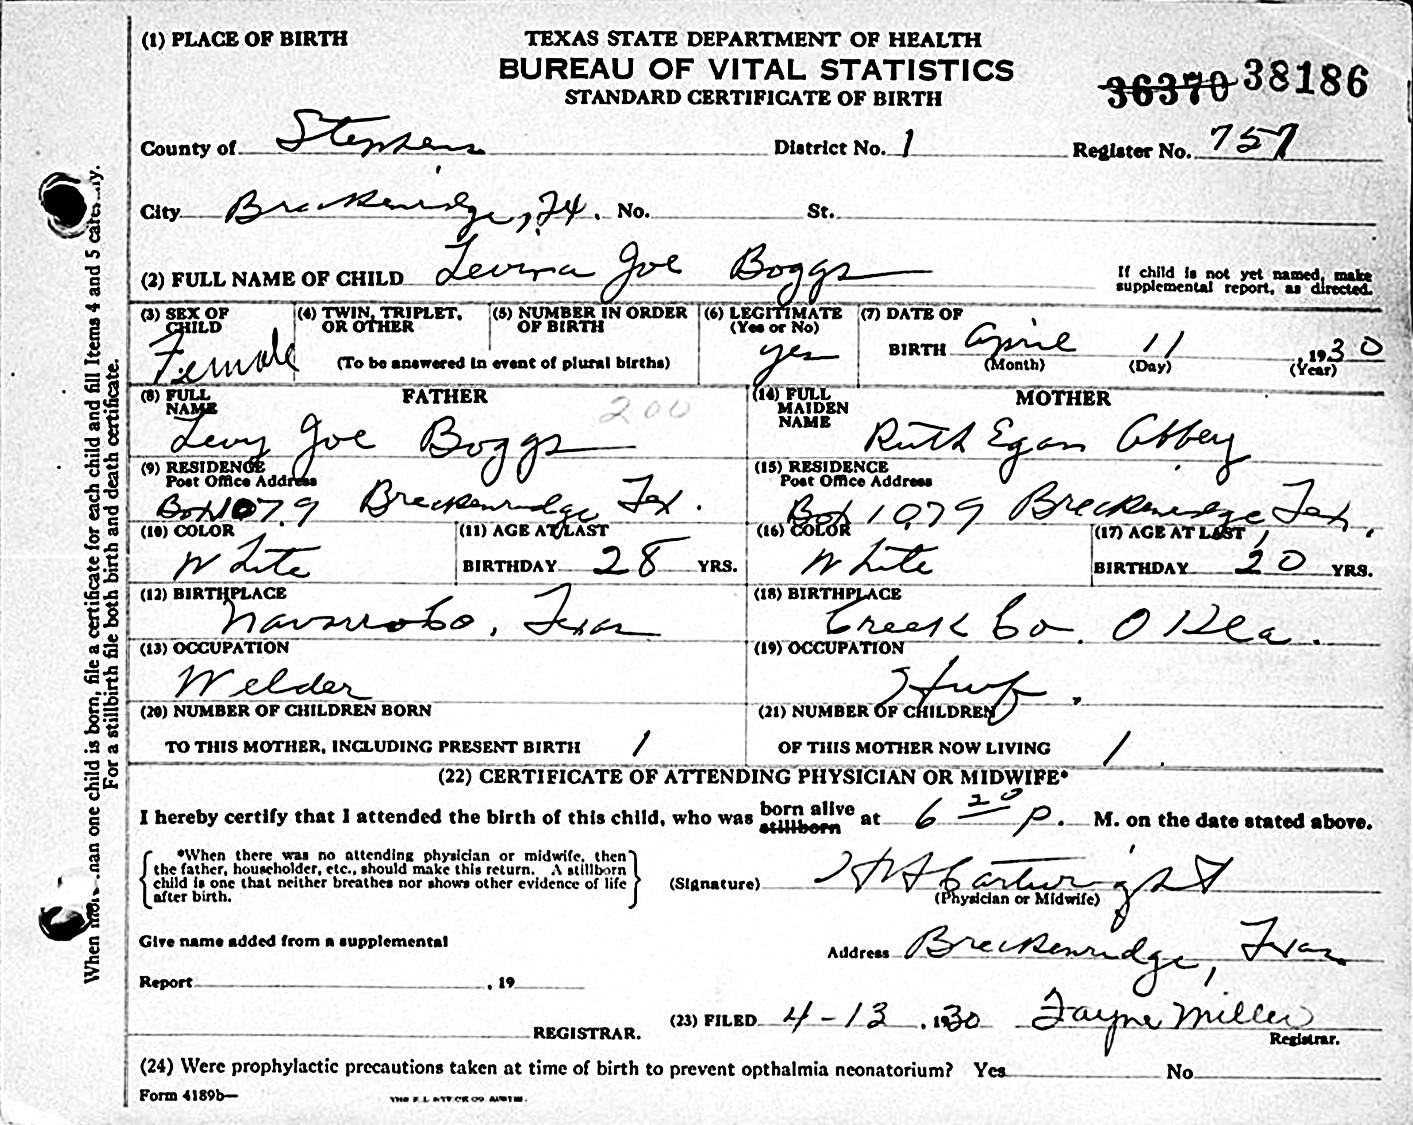 (1) PLACE OF BIRTH
TEXAS STATE DEPARTMENT OF HEALTH
BUREAU OF VITAL STATISTICS
STANDARD CERTIFICATE OF BIRTH
36370 38186
County of Stephens District No. 1 Register No. 757
City Breckenridge, No. St.
(2) FULL NAME OF CHILD Levina Joe Boggs
If child is not yet named, make
supplemental report, as directed.
(3) SEX OF CHILD Female
(4) TWIN, TRIPLET, OR OTHER
(5) NUMBER IN ORDER OF BIRTH
(To be answered in event of plural births)
(6) LEGITIMATE (Yes or No) yes
(7) DATE OF BIRTH April 11, 1930
(Month) (Day) (Year)
FATHER
200
(8) FULL NAME Levy Joe Boggs
(9) RESIDENCE Post Office Address
Box 1079 Breckenridge Tex.
(10) COLOR White
(11) AGE AT LAST BIRTHDAY 28 YRS.
(12) BIRTHPLACE Navarro Co, Texas
(13) OCCUPATION Welder
MOTHER
(14) FULL MAIDEN NAME Ruth Egan Abbey
(15) RESIDENCE Post Office Address
Box 1079 Breckenridge, Tex.
(16) COLOR White
(17) AGE AT LAST BIRTHDAY 20 YRS.
(18) BIRTHPLACE Creek Co. Okla.
(19) OCCUPATION Hwf.
(20) NUMBER OF CHILDREN BORN
TO THIS MOTHER, INCLUDING PRESENT BIRTH 1
(21) NUMBER OF CHILDREN
OF THIS MOTHER NOW LIVING 1
(22) CERTIFICATE OF ATTENDING PHYSICIAN OR MIDWIFE*
I hereby certify that I attended the birth of this child, who was born alive stillborn at 6 20 P. M. on the date stated above.
*When there was no attending physician or midwife, then
the father, householder, etc., should make this return. A stillborn
child is one that neither breathes nor shows other evidence of life
after birth.
(Signature) Cartwright
(Physician or Midwife)
Give name added from a supplemental
Address Breckenridge, Texas
Report , 19
(23) FILED 4-13, 1930 Fayne Miller
Registrar.
REGISTRAR.
(24) Were prophylactic precautions taken at time of birth to prevent opthalmia neonatorium? Yes No
Form 4189b—
When more than one child is born, file a certificate for each child and fill Items 4 and 5
For a stillbirth file both birth and death certificate.